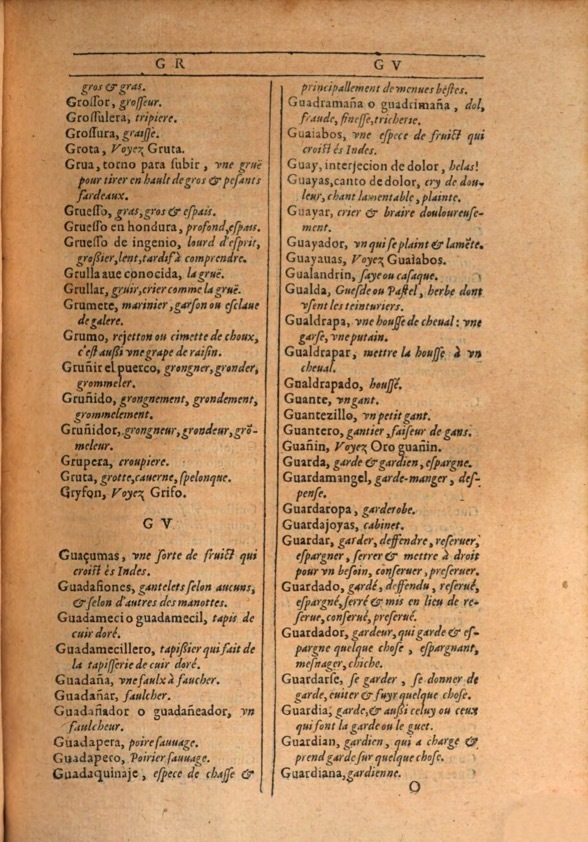 G R
gros & gras.
Groſſor, groſſeur.
Groſſulera, tripiere.
Groſſura, graiſſe.
Grota, Voyez Gruta.
Grua, torno para ſubir, vne gruë
pour tirer en hault de gros & peſants
fardeaux.
Grueſſo, gras, gros & eſpais.
Grueſſo en hondura, profond, eſpais.
Grueſſo de ingenio, lourd d'eſprit,
groſsier, lent, tardif à comprendre.
Grulla aue conocida, la gruë.
Grullar, gruir, crier comme la gruë.
Grumete, marinier, garſon ou eſclaue
de galere.
Grumo, rejetton ou cimette de choux,
c'eſt auſsi vne grape de raiſin.
Gruñir el puerco, grongner, gronder,
grommeler.
Gruñido, grongnement, grondement,
grommelement.
Gruñidor, grongneur, grondeur, grō-
meleur.
Grupera, croupiere.
Gruta, grotte, cauerne, ſpelonque.
Gryfon, Voyez Grifo.
G V
Guaçumas, vne ſorte de fruict qui
croiſt és Indes.
Guadafiones, gantelets ſelon aucuns,
& ſelon d'autres des manottes.
Guadameci o guadamecil, tapis de
cuir doré.
Guadamecillero, tapiſsier qui fait de
la tapiſſerie de cuir doré.
Guadaña, vne faulx à faucher.
Guadañar, faulcher.
Guadañador o guadañeador, vn
faulcheur.
Guadapera, poire ſauuage.
Guadapero, Poirier ſauuage.
Guadaquinaje, eſpece de chaſſe &
G V
principallement de menues beſtes.
Guadramaña o guadrimaña, dol,
fraude, fineſſe, tricherie.
Guaiabos, vne eſpece de fruict qui
croiſt és Indes.
Guay, interjecion de dolor, helas!
Guayas, canto de dolor, cry de dou-
leur, chant lamentable, plainte.
Guayar, crier & braire douloureuſe-
ment.
Guayador, vn qui ſe plaint & lamēte.
Guayauas, Voyez Guaiabos.
Gualandrin, ſaye ou caſaque.
Gualda, Gueſde ou Paſtel, herbe dont
vſent les teinturiers.
Gualdrapa, vne houſſe de cheual: vne
garſe, vne putain.
Gualdrapar, mettre la houſſe à vn
cheual.
Gualdrapado, houſſé.
Guante, vn gant.
Guantezillo, vn petit gant.
Guantero, gantier, faiſeur de gans.
Guañin, Voyez Oro guañin.
Guarda, garde & gardien, eſpargne.
Guardamangel, garde-manger, deſ-
penſe.
Guardaropa, garderobe.
Guardajoyas, cabinet.
Guardar, garder, deffendre, reſeruer,
eſpargner, ſerrer & mettre à droit
pour vn beſoin, conſeruer, preſeruer.
Guardado, gardé, deffendu, reſerué,
eſpargné, ſerré & mis en lieu de re-
ſerue, conſerué, preſerué.
Guardador, gardeur, qui garde & eſ-
pargne quelque choſe, eſpargnant,
meſnager, chiche.
Guardarſe, ſe garder, ſe donner de
garde, euiter & fuyr quelque choſe.
Guardia, garde, & auſsi celuy ou ceux
qui font la garde ou le guet.
Guardian, gardien, qui a charge &
prend garde ſur quelque choſe.
Guardiana, gardienne.
O